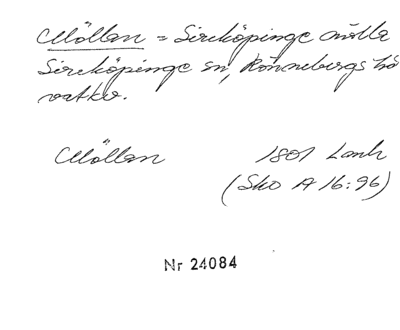 Möllan = Sireköpinge mölla
Sireköpinge sn, Rönnebergs hd
vatkv.
Möllan 1801 Lanh
(Sko A 16:96)
Nr 24084